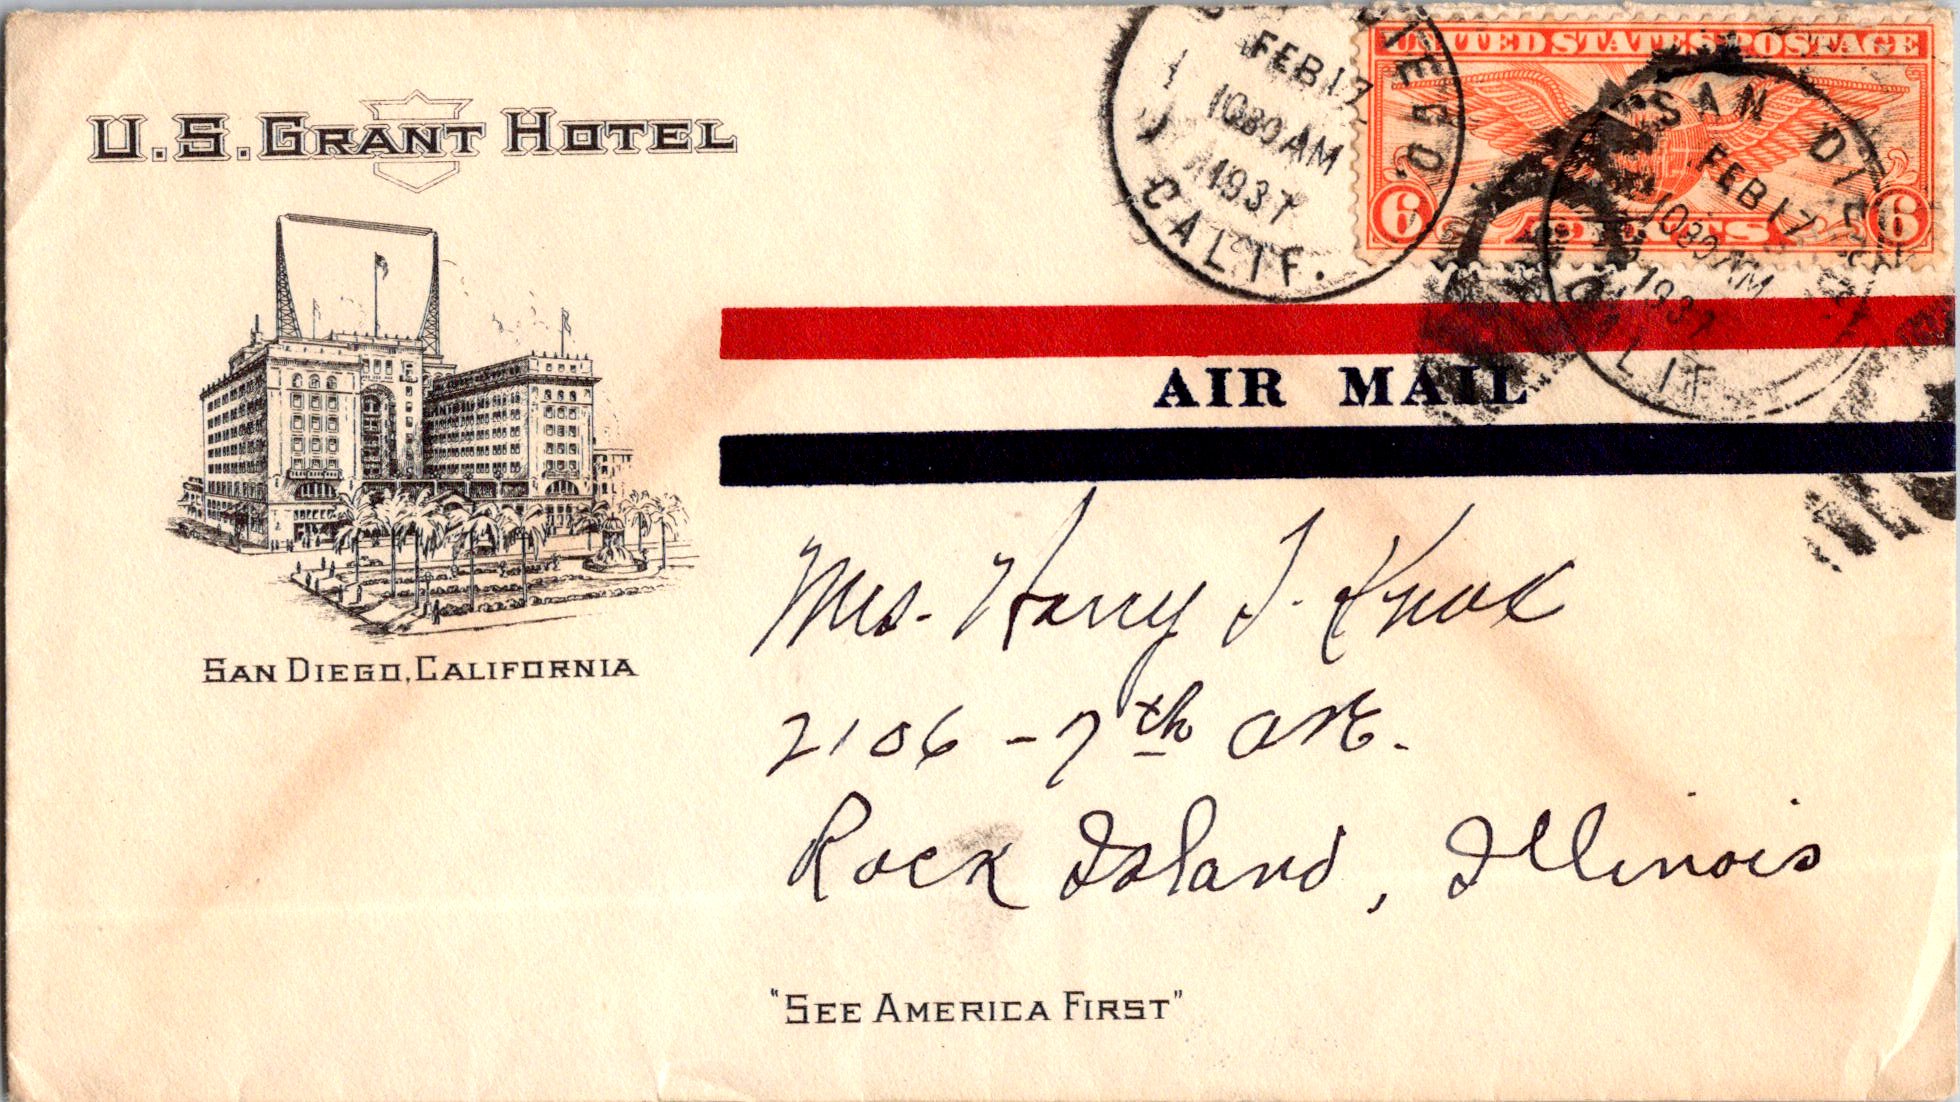 U.S. GRANT HOTEL
SAN DIEGO, CALIFORNIA
DIEGO,
FEB 17
1030 AM
1937
CALIF.
UNITED STATES POSTAGE
6 CENTS 6
SAN DIEGO
FEB 17
1030 AM
1937
CALIF
AIR MAIL
Mrs. Harry J. Knox
2106 - 7th Ave.
Rock Island, Illinois
"SEE AMERICA FIRST"